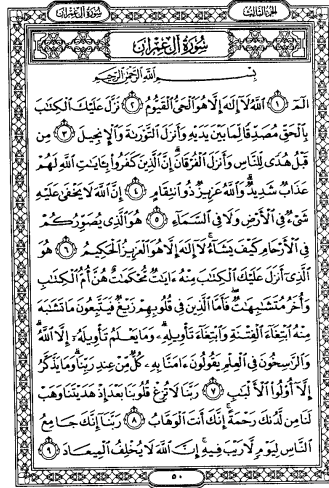 سورة آل عمران
الجزء الثالث
سورة آل عمران
بسم الله الرحمن الرحيم
الٓمٓ ۝١ ٱللَّهُ لَآ إِلَٰهَ إِلَّا هُوَ ٱلْحَىُّ ٱلْقَيُّومُ ۝٢ نَزَّلَ عَلَيْكَ ٱلْكِتَٰبَ
بِٱلْحَقِّ مُصَدِّقًا لِّمَا بَيْنَ يَدَيْهِ وَأَنزَلَ ٱلتَّوْرَىٰةَ وَٱلْإِنجِيلَ ۝٣ مِن
قَبْلُ هُدًى لِّلنَّاسِ وَأَنزَلَ ٱلْفُرْقَانَ ۗ إِنَّ ٱلَّذِينَ كَفَرُوا۟ بِـَٔايَٰتِ ٱللَّهِ لَهُمْ
عَذَابٌ شَدِيدٌ ۗ وَٱللَّهُ عَزِيزٌ ذُو ٱنتِقَامٍ ۝٤ إِنَّ ٱللَّهَ لَا يَخْفَىٰ عَلَيْهِ
شَىْءٌ فِى ٱلْأَرْضِ وَلَا فِى ٱلسَّمَآءِ ۝٥ هُوَ ٱلَّذِى يُصَوِّرُكُمْ
فِى ٱلْأَرْحَامِ كَيْفَ يَشَآءُ ۚ لَآ إِلَٰهَ إِلَّا هُوَ ٱلْعَزِيزُ ٱلْحَكِيمُ ۝٦ هُوَ
ٱلَّذِىٓ أَنزَلَ عَلَيْكَ ٱلْكِتَٰبَ مِنْهُ ءَايَٰتٌ مُّحْكَمَٰتٌ هُنَّ أُمُّ ٱلْكِتَٰبِ
وَأُخَرُ مُتَشَٰبِهَٰتٌ ۖ فَأَمَّا ٱلَّذِينَ فِى قُلُوبِهِمْ زَيْغٌ فَيَتَّبِعُونَ مَا تَشَٰبَهَ
مِنْهُ ٱبْتِغَآءَ ٱلْفِتْنَةِ وَٱبْتِغَآءَ تَأْوِيلِهِۦ ۗ وَمَا يَعْلَمُ تَأْوِيلَهُۥٓ إِلَّا ٱللَّهُ ۗ
وَٱلرَّٰسِخُونَ فِى ٱلْعِلْمِ يَقُولُونَ ءَامَنَّا بِهِۦ كُلٌّ مِّنْ عِندِ رَبِّنَا ۗ وَمَا يَذَّكَّرُ
إِلَّآ أُو۟لُوا۟ ٱلْأَلْبَٰبِ ۝٧ رَبَّنَا لَا تُزِغْ قُلُوبَنَا بَعْدَ إِذْ هَدَيْتَنَا وَهَبْ
لَنَا مِن لَّدُنكَ رَحْمَةً ۚ إِنَّكَ أَنتَ ٱلْوَهَّابُ ۝٨ رَبَّنَآ إِنَّكَ جَامِعُ
ٱلنَّاسِ لِيَوْمٍ لَّا رَيْبَ فِيهِ ۚ إِنَّ ٱللَّهَ لَا يُخْلِفُ ٱلْمِيعَادَ ۝٩
٥٠